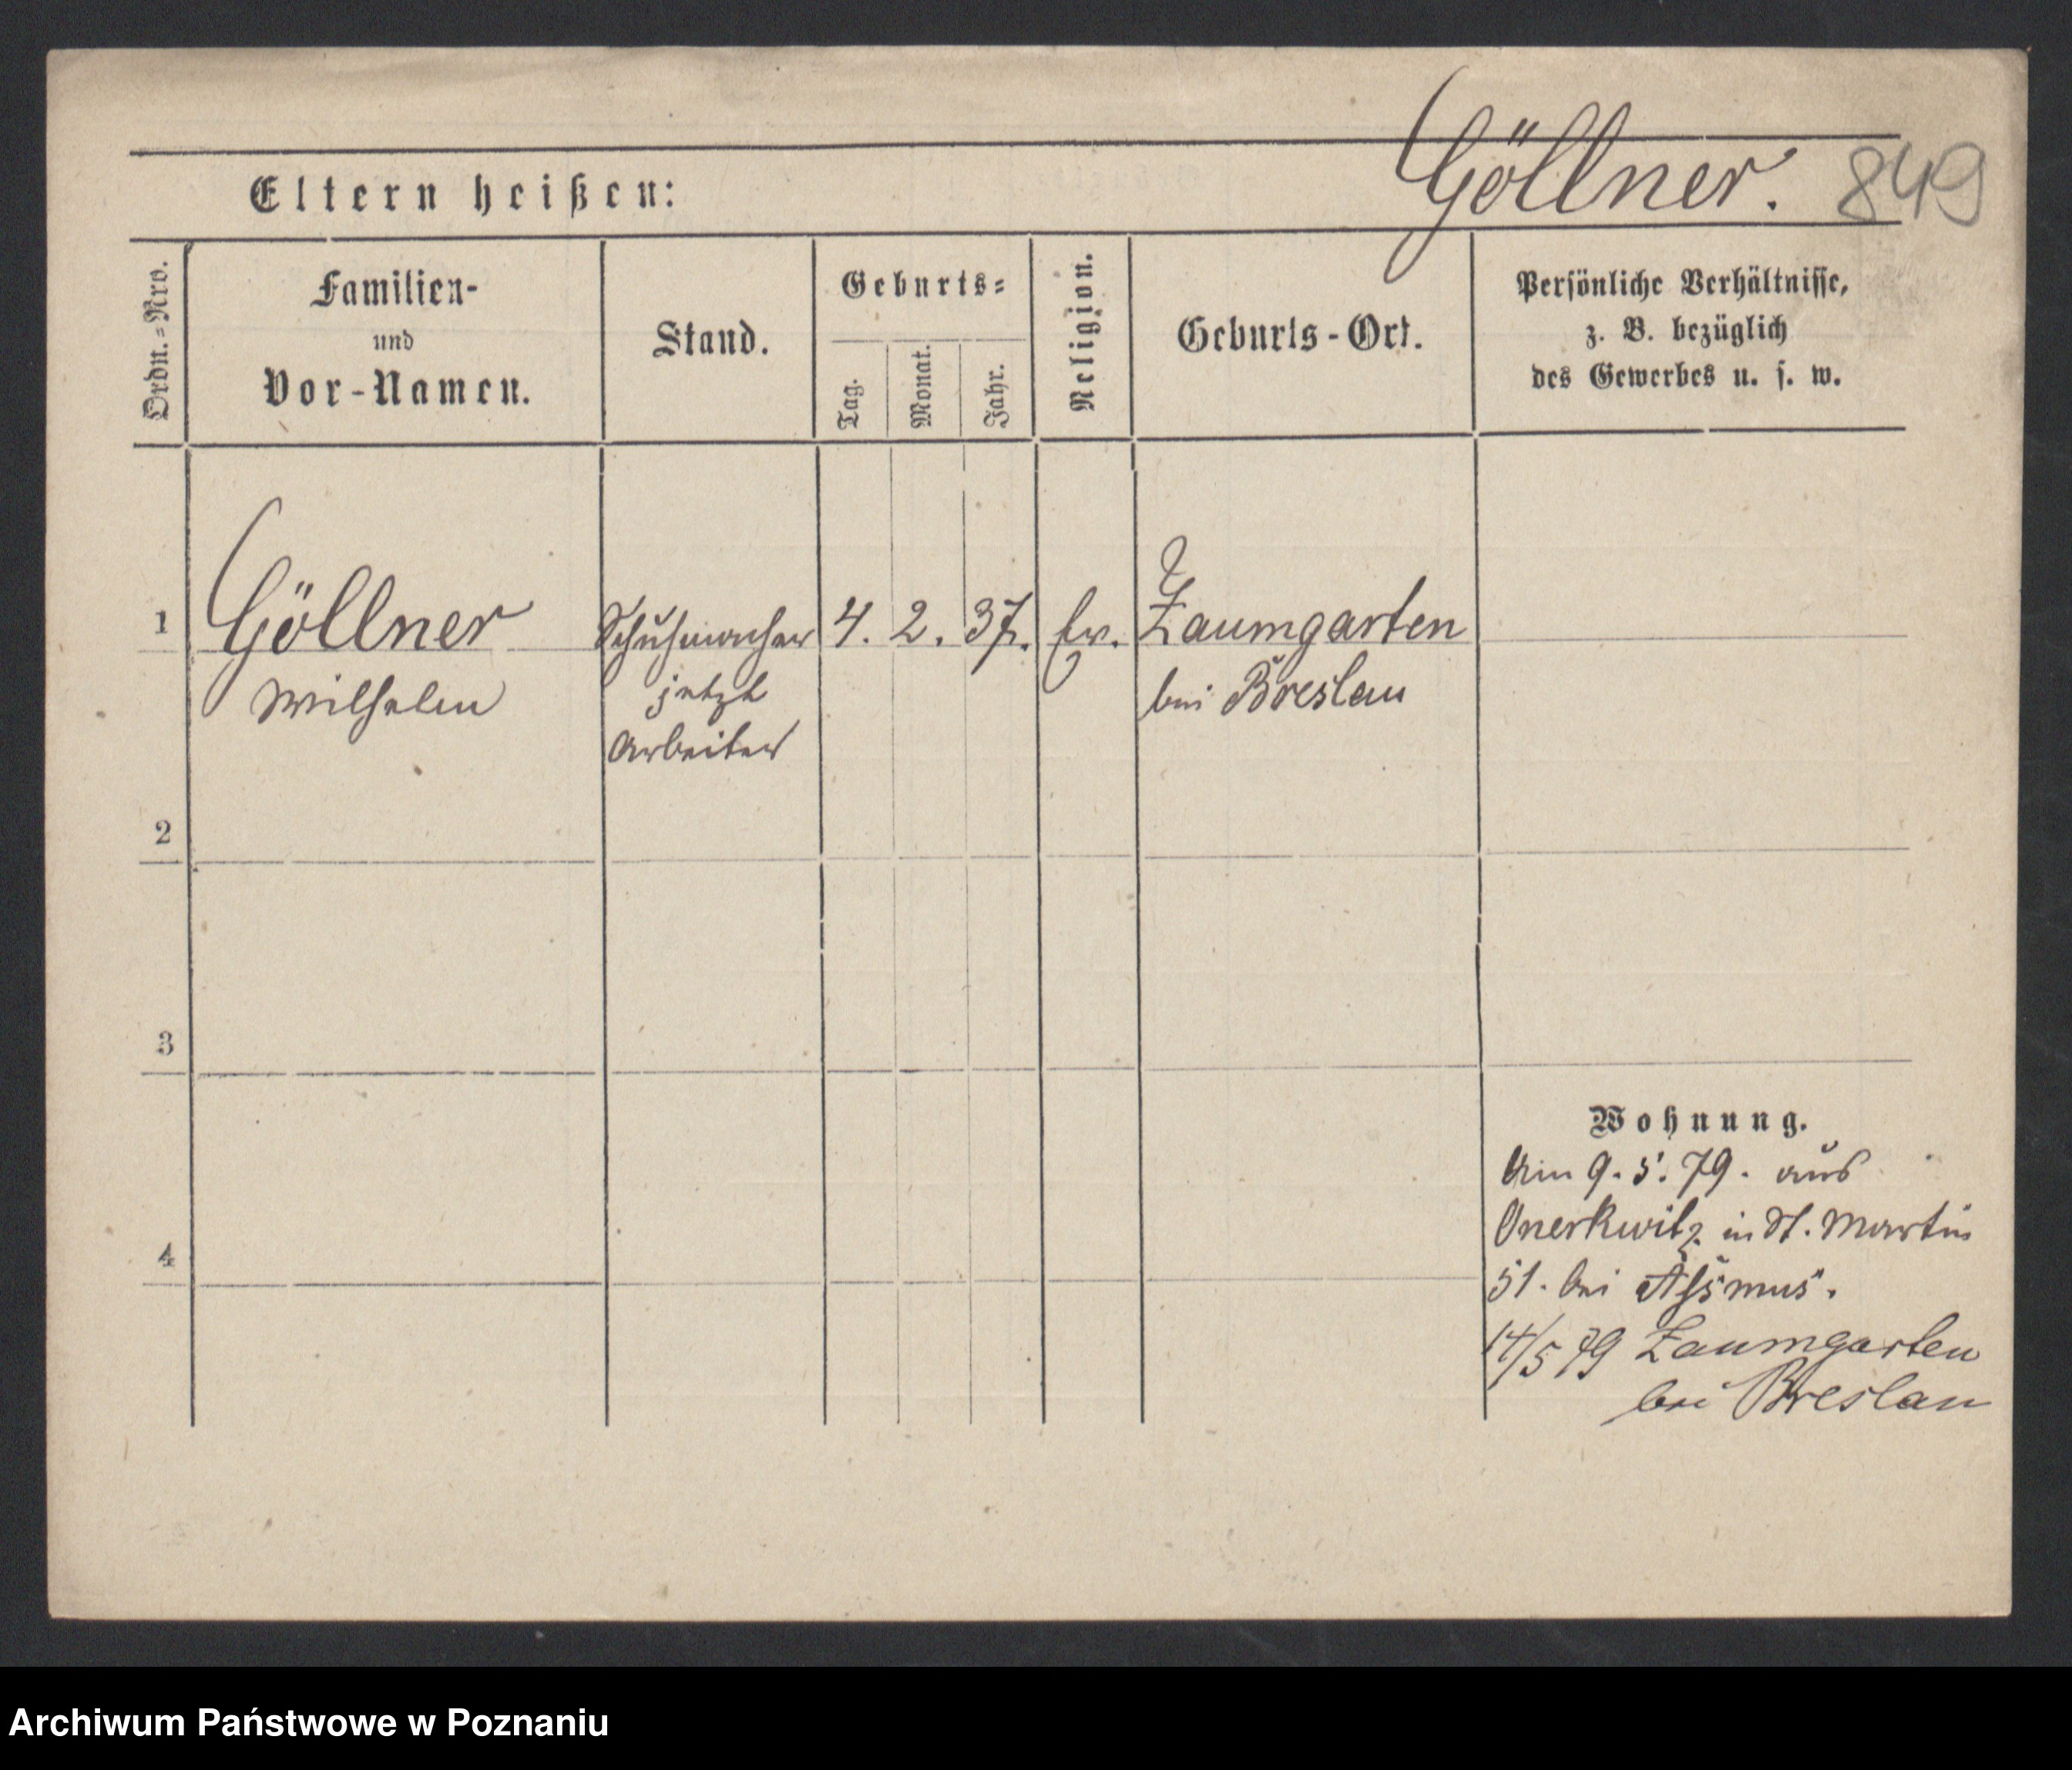 Göllner. 849
Eltern heißen:
Ordn.=Nro.
Familien-
und
Vor-Namen.
Stand.
Geburts=
Tag.
Monat.
Jahr.
Religion.
Geburts-Ort.
Persönliche Verhältnisse,
z. B. bezüglich
des Gewerbes u. s. w.
1 Göllner Schuhmacher 4. 2. 37. Ev. Zaumgarten
Wilhelm jetzt bei Breslau
Arbeiter
2
3
Wohnung.
Am 9. 5. 79. aus
Onerkwitz in St. Martin
4
51. bei Assmus.
14/5 79 Zaumgarten
bei Breslau
Archiwum Państwowe w Poznaniu